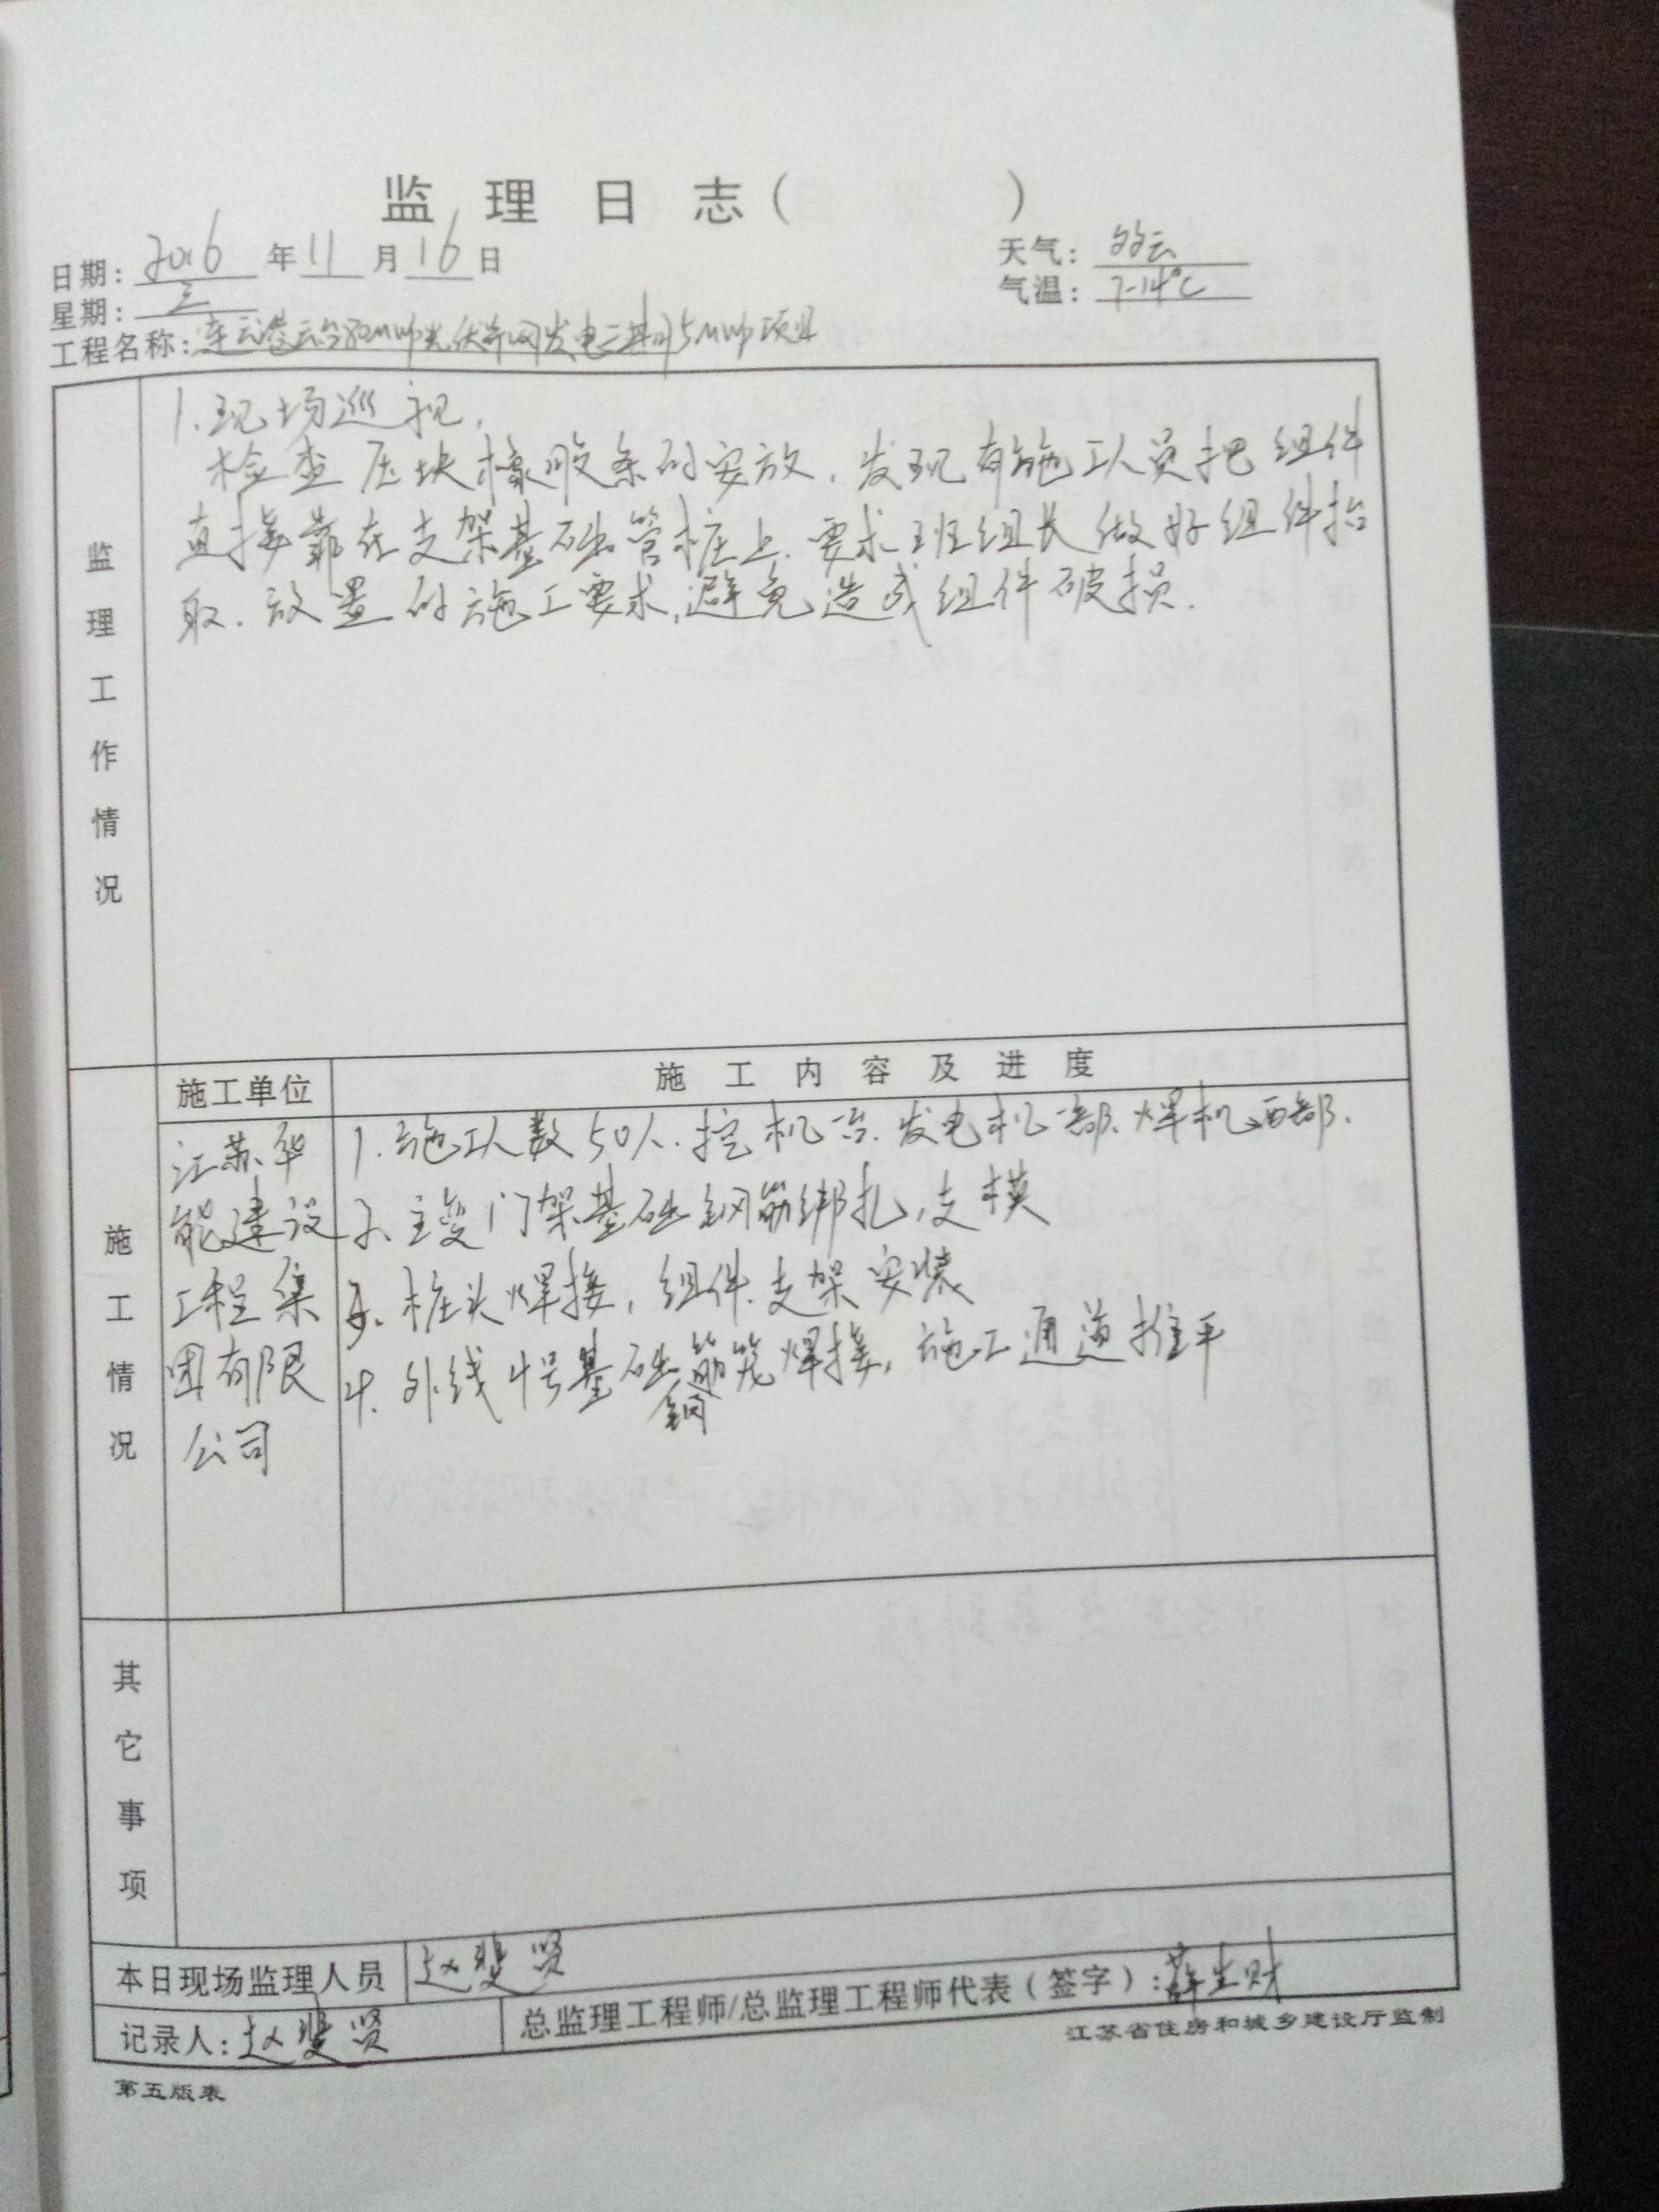 监理日志（ ）
日期：2016年11月16日 天气：多云
星期：三 气温：7-14℃
工程名称：连云港云台80MWp光伏并网发电二期35MWp项目
监理工作情况
1.现场巡视，
检查压块橡胶条的安放，发现有施工人员把组件
直接靠在支架基础管桩上，要求班组长做好组件抬
取、放置的施工要求，避免造成组件破损.
施工情况
施工单位 施工内容及进度
江苏华
能建设
工程集
团有限
公司
1.施工人数50人.挖机一台.发电机一部.焊机四部.
2.主变门架基础钢筋绑扎,支模
3.桩头焊接，组件.支架安装
4.外线4号基础钢筋笼焊接，施工通道推平
其它事项
本日现场监理人员 赵斐贤
记录人：赵斐贤 总监理工程师/总监理工程师代表（签字）：薛生财
江苏省住房和城乡建设厅监制
第五版表